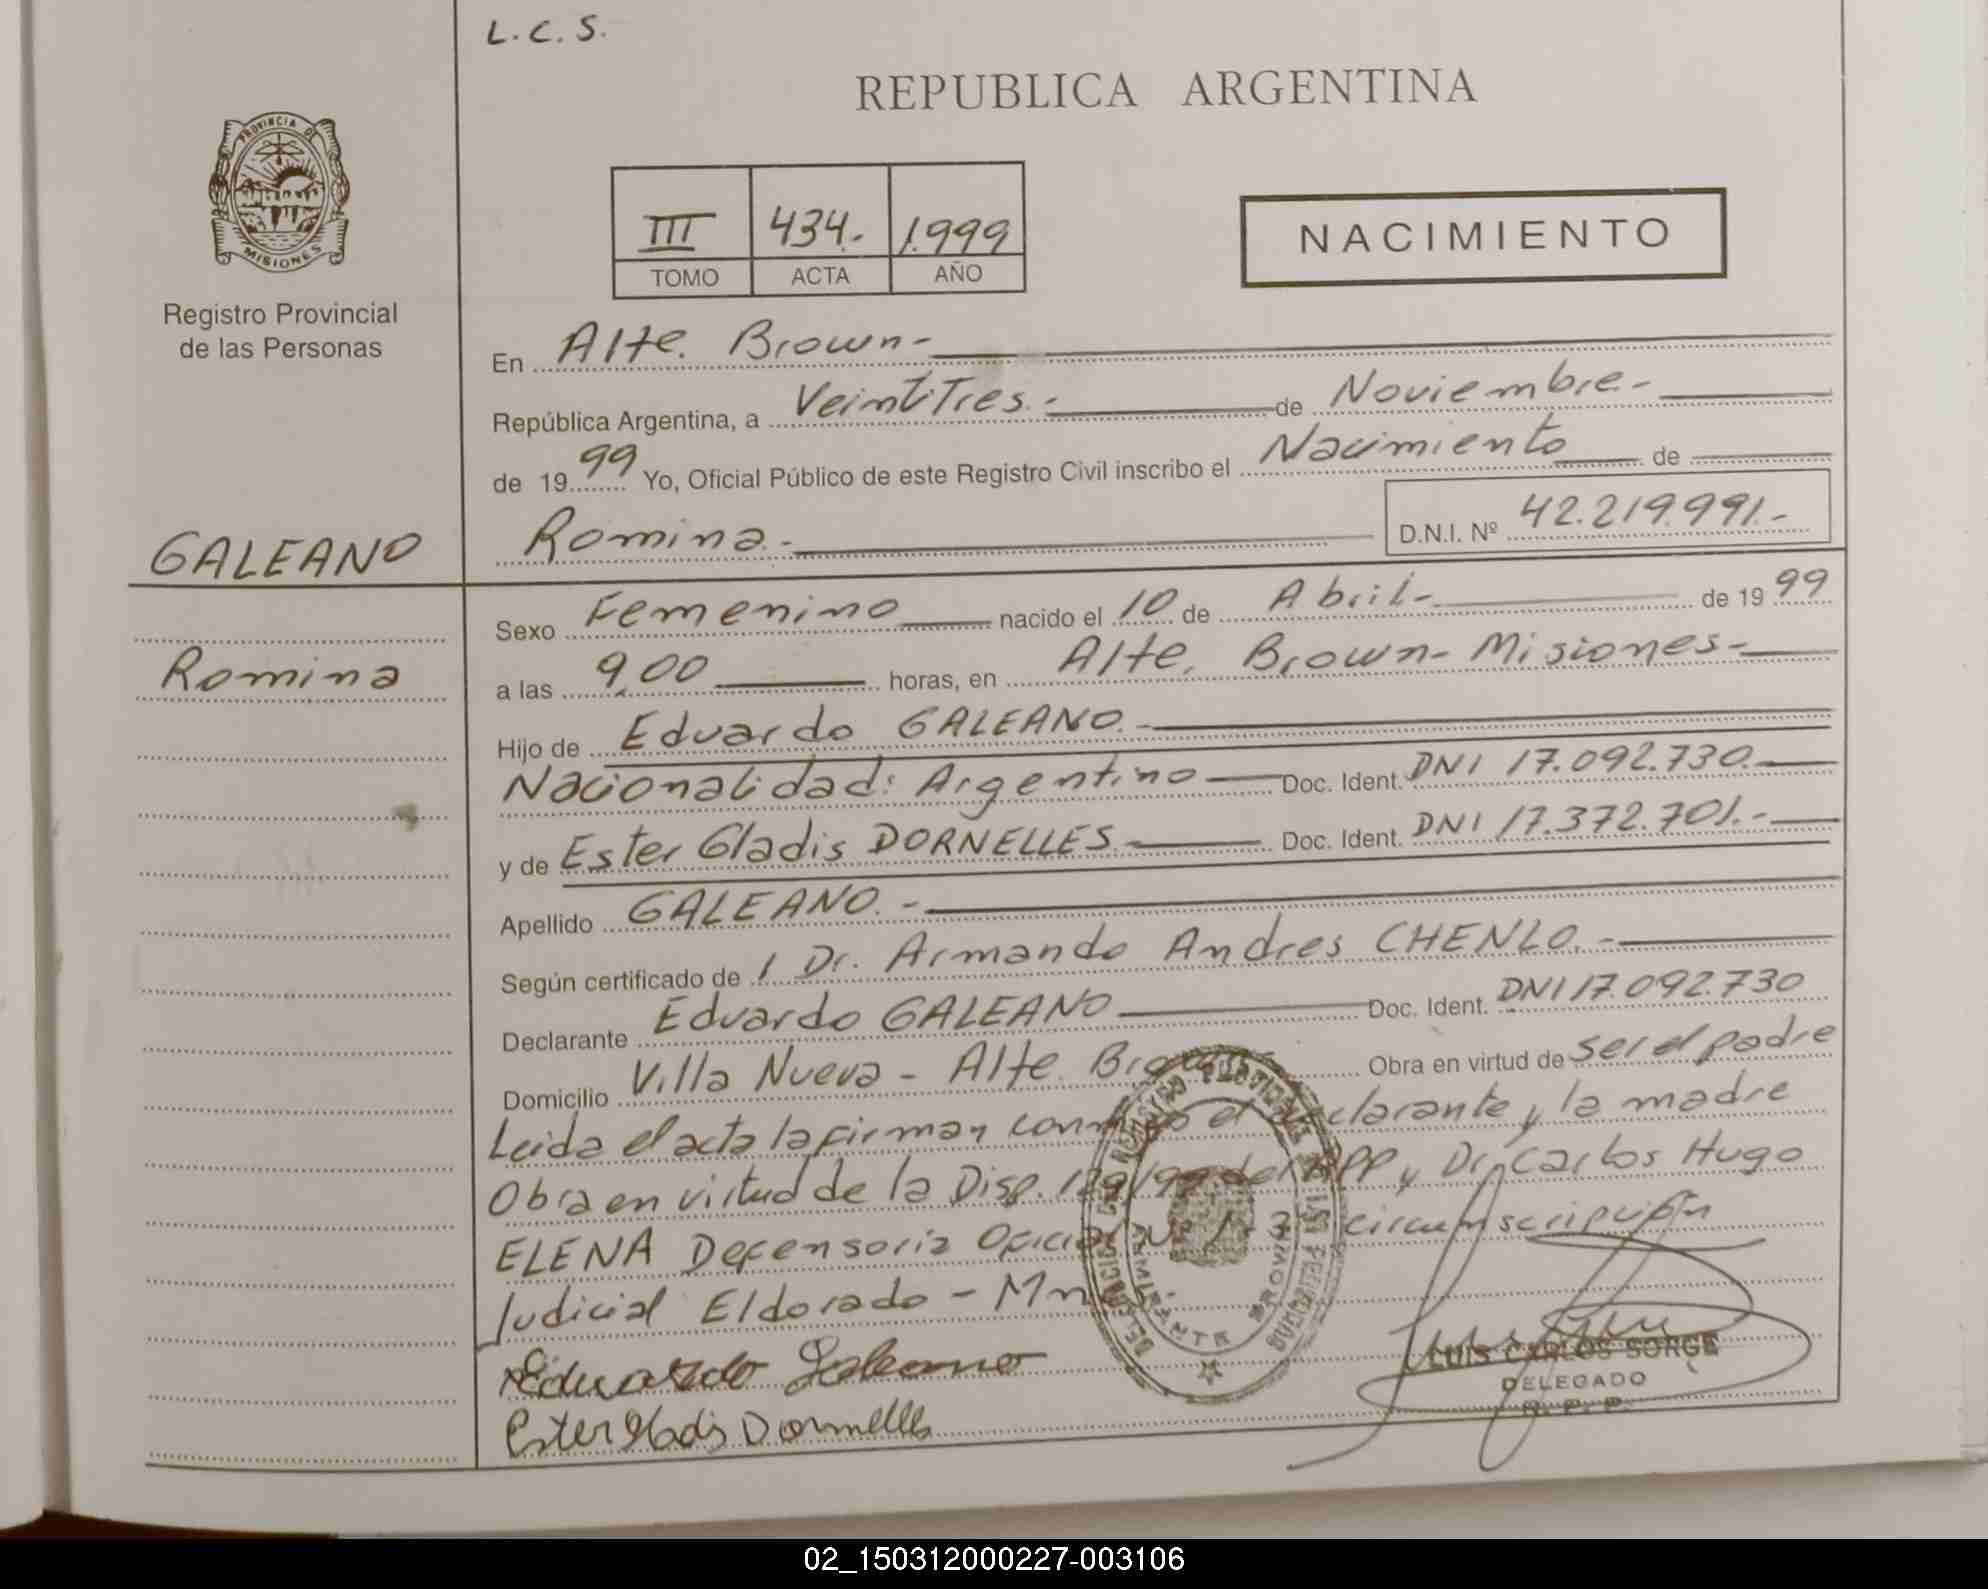 L.C.S.
REPUBLICA ARGENTINA
PROVINCIA DE
MISIONES
Registro Provincial
de las Personas
III 434.- 1.999
TOMO ACTA AÑO
NACIMIENTO
En Alte. Brown-
República Argentina, a VeintiTres.- de Noviembre-
de 1999 Yo, Oficial Público de este Registro Civil inscribo el Nacimiento de
GALEANO
Romina.- D.N.I. Nº 42.219.991.-
Sexo Femenino nacido el 10 de Abril- de 1999
Romina
a las 9,00 horas, en Alte. Brown- Misiones-
Hijo de Eduardo GALEANO.-
Nacionalidad: Argentino Doc. Ident. DNI 17.092.730.-
y de Ester Gladis DORNELLES.- Doc. Ident. DNI 17.372.701.-
Apellido GALEANO.-
Según certificado de 1 Dr. Armando Andres CHENLO.-
Declarante Eduardo GALEANO Doc. Ident. DNI 17.092.730
Domicilio Villa Nueva - Alte. Brown Obra en virtud de ser el padre
Leida el acta la firman conmigo el declarante y la madre
Obra en virtud de la Disp. del RPP y Dr. Carlos Hugo
ELENA Defensoria Oficial Nº 1- 3ª circunscripción
Judicial Eldorado - Mnes.-
Eduardo Galeano
Ester Gladis Dornelles
LUIS CARLOS SORGE
DELEGADO
R. P. P.
02_150312000227-003106